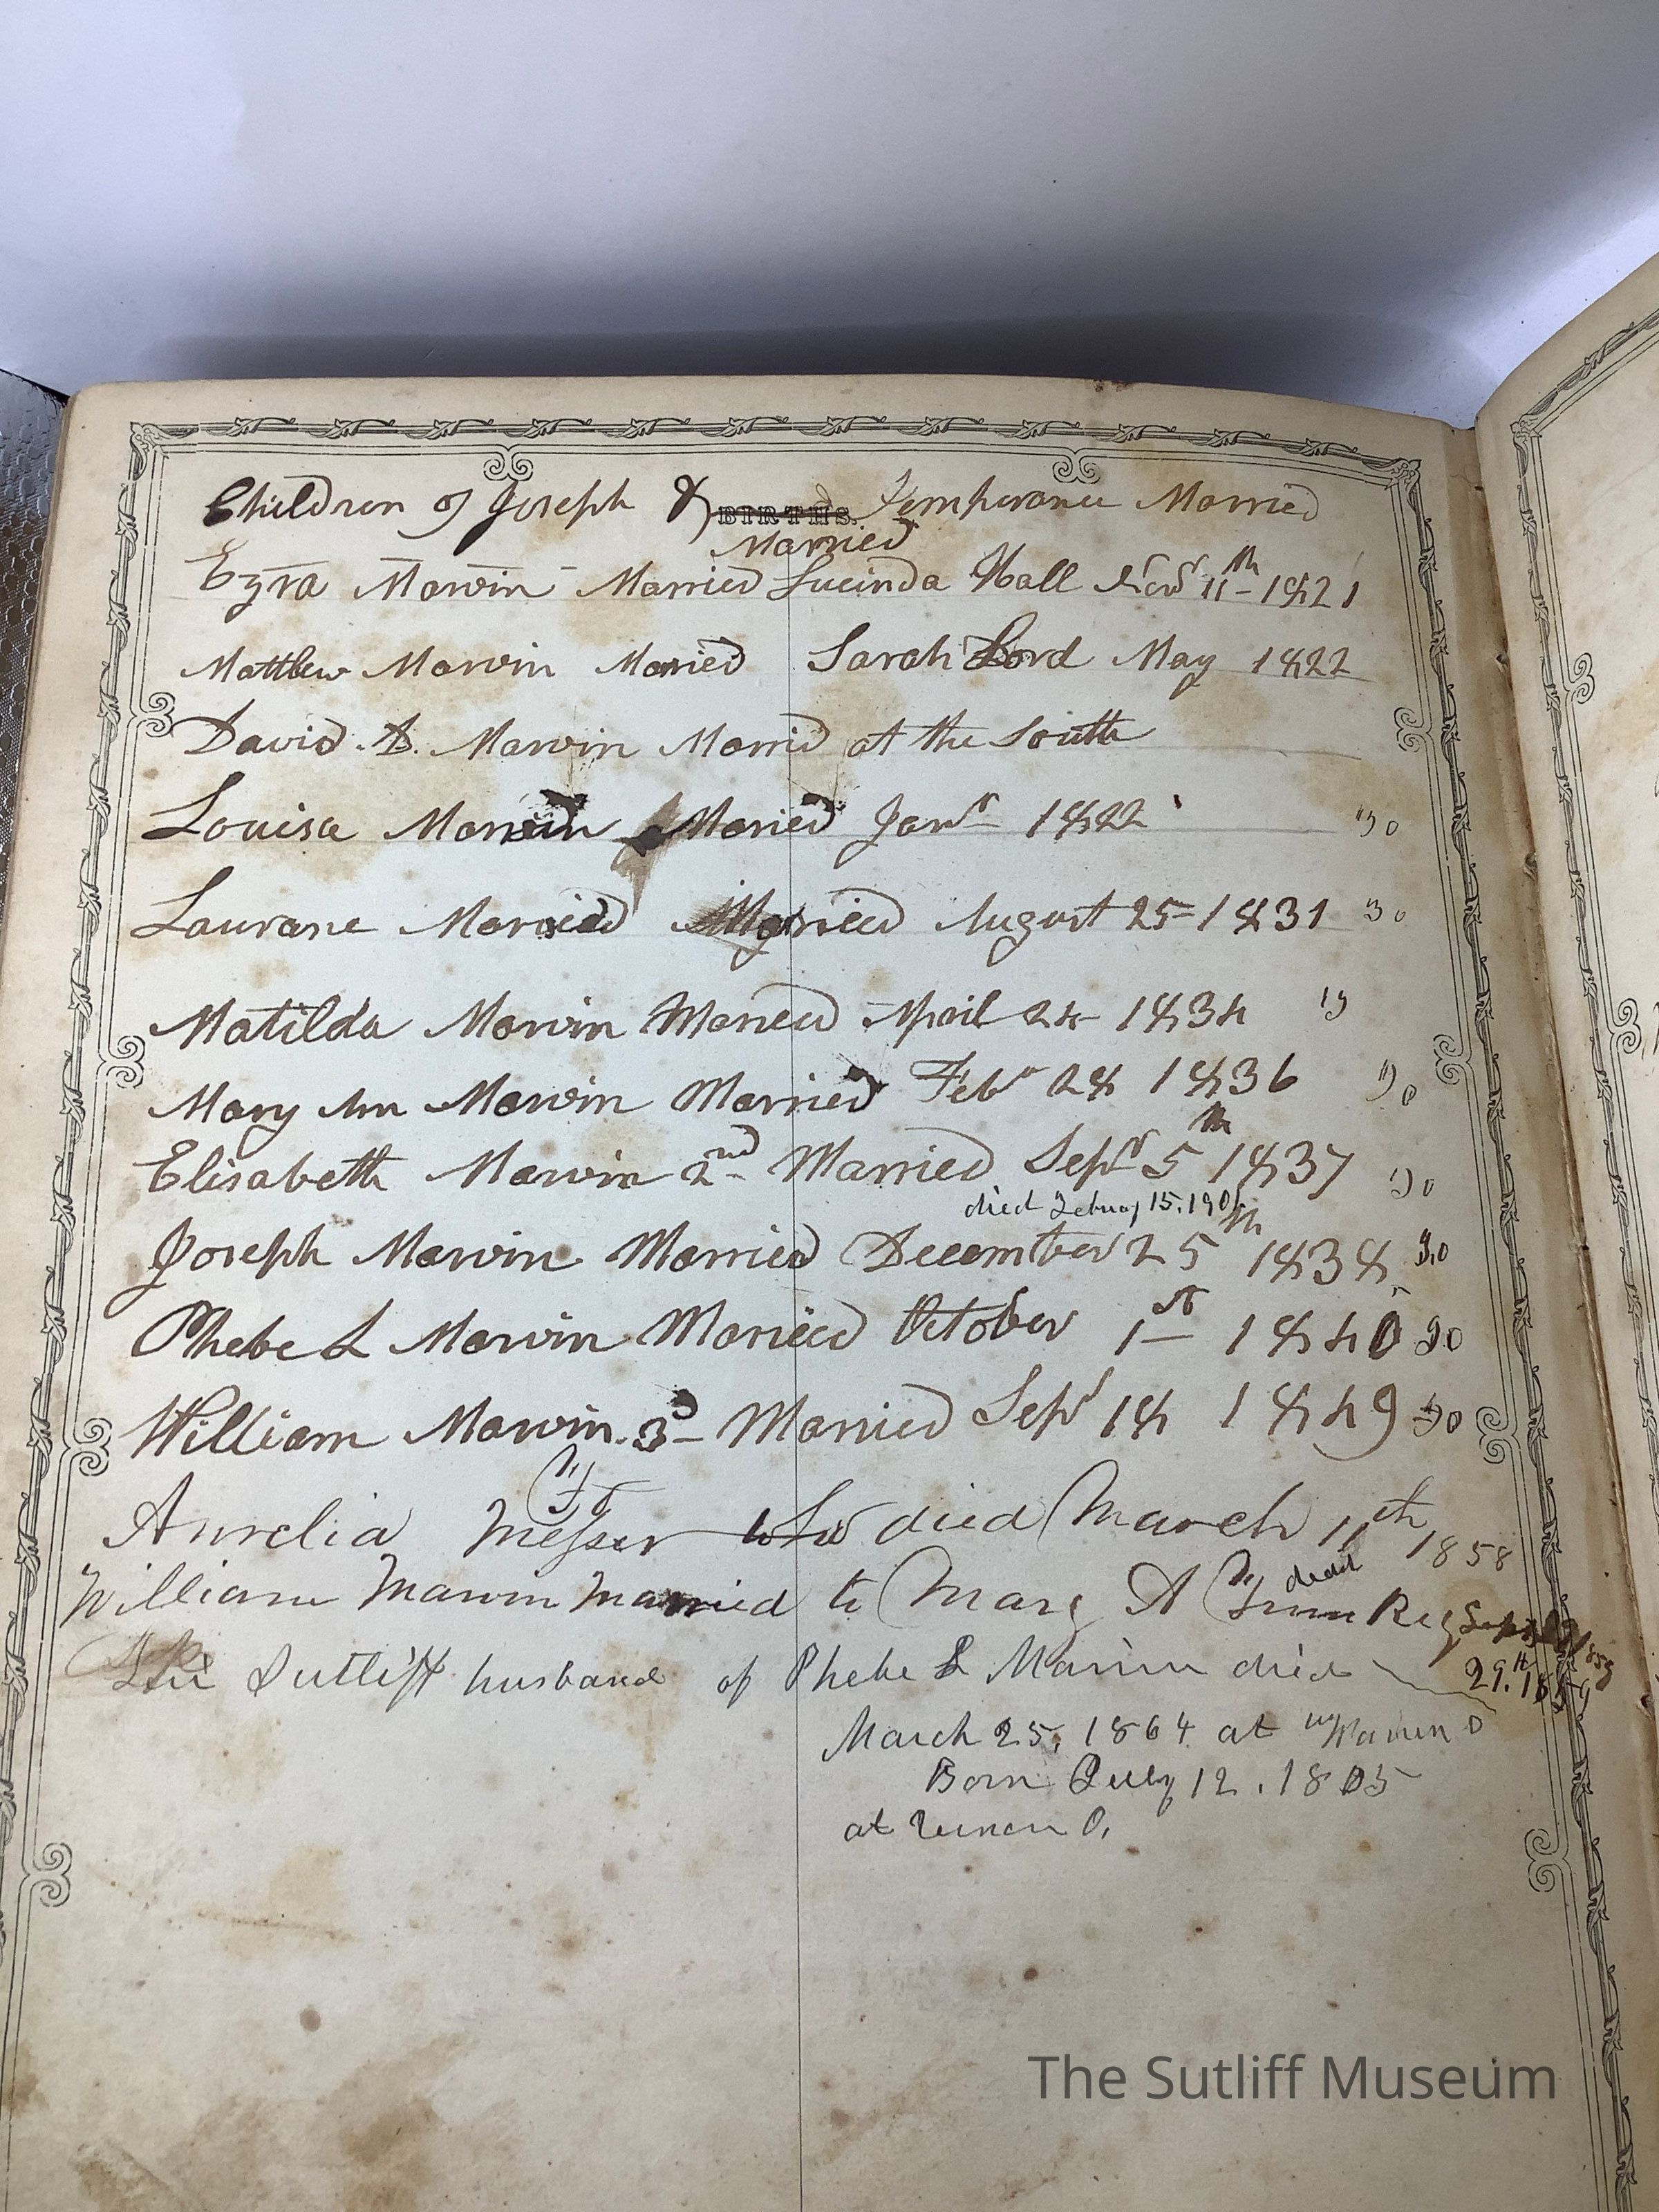 Children of Joseph & Temperance Married
BIRTHS.
Married
Ezra Marvin Married Lucinda Hall Novr 11th 1821
Matthew Marvin Maried Sarah Lord May 1822
David D. Marvin Marrid at the South
Louisa Marvin Maried Janr 1822 30
Laurane Marvied Married August 25 1831 30
Matilda Marvin Maried April 24 1834
Mary Ann Marvin Married Febr 28 1836 30
Elisabeth Marvin 2nd Married Sepr 5th 1837 30
died Februay 15. 190
Joseph Marvin Married December 25th 1838 30
Phebe L Marvin Maried October 1st 1840 30
William Marvin 3d Married Sepr 18 1849 30
Aurelia Messer who died March 11th 1858
William Marvin Married to Mary A died
29th
Sutliff husband of Phebe L Marvin died
March 25, 1864 at Warren O
Born July 12, 1805
at O,
The Sutliff Museum